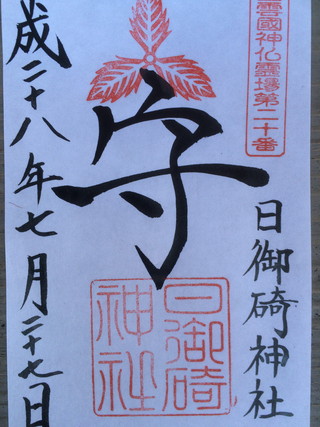 雲國神仏霊場第二十番
日御碕神社
守
日御碕
神社
成二十八年七月二十七日